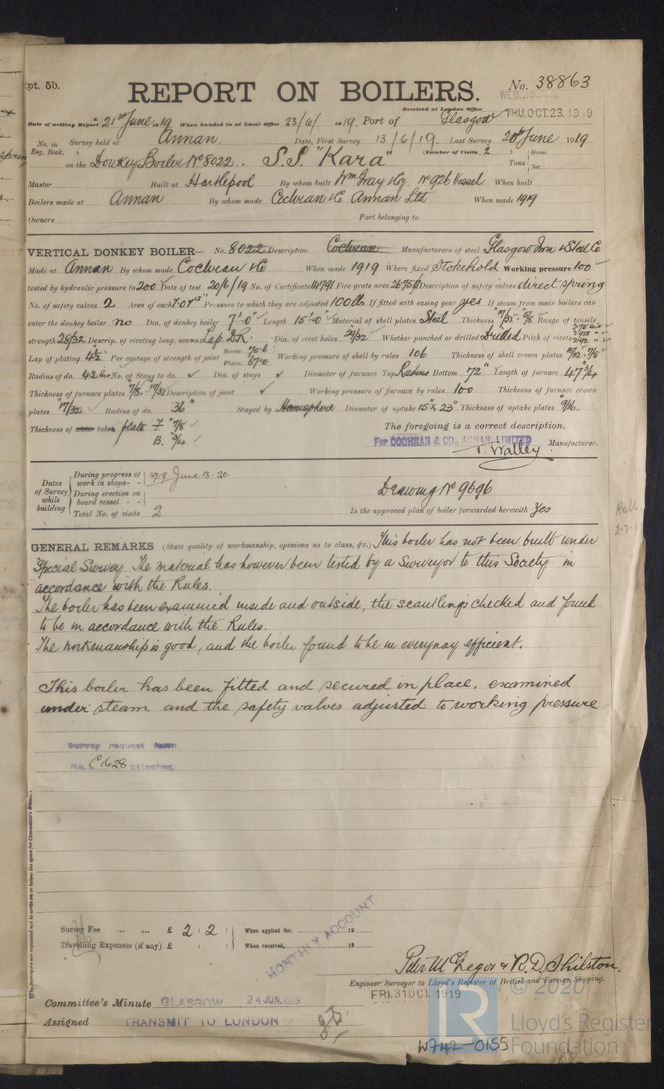 Rpt. 5b.
REPORT ON BOILERS.
No. 38863
Received at London Office WED. 29
THU. OCT. 23. 1919
Date of writing Report 21st June 1919 When handed in at Local Office 23/6/1919. Port of Glasgow
No. in Survey held at Annan Date, First Survey 13/6/19. Last Survey 20th June 1919
Reg. Book. (Number of Visits 2
on the Donkey Boiler No 8022. S.S. "Kara" Tons Gross Net
Master Built at Hartlepool By whom built Wm Gray & Co No 926 Vessel When built
Boilers made at Annan By whom made Cochran & Co Annan Ltd When made 1919
Owners Port belonging to
VERTICAL DONKEY BOILER— No. 8022 Description Cochran Manufacturers of steel Glasgow Iron & Steel Co
Made at Annan By whom made Cochran & Co When made 1919 Where fixed Stokehold Working pressure 100
tested by hydraulic pressure to 200 Date of test 20/6/19 No. of Certificate 14791 Fire grate area Description of safety valves direct spring
No. of safety valves 2 Area of each 7.07" Pressure to which they are adjusted 100 lbs If fitted with easing gear yes If steam from main boilers can
enter the donkey boiler no Dia. of donkey boiler 7'-0" Length 15'-0" Material of shell plates Steel Thickness Range of tensile
strength 28/32 Descrip. of riveting long. seams Lap D.R. Dia. of rivet holes 29/32 Whether punched or drilled Drilled Pitch of rivets
Lap of plating 4½ Per centage of strength of joint Rivets 70.6 Plates 67.0 Working pressure of shell by rules 106 Thickness of shell crown plates
Radius of do. 42 ins No. of Stays to do. Dia. of stays Diameter of furnace Top Radius Bottom 72" Length of furnace 47¾
Thickness of furnace plates Description of joint Working pressure of furnace by rules 100 Thickness of furnace crown
plates 17/32 Radius of do. 36" Stayed by Hemisphere Diameter of uptake 15" x 23" Thickness of uptake plates 9/16
Thickness of water tubes plate F. 7/8 The foregoing is a correct description,
B. 3/4 For COCHRAN & CO., ANNAN, LIMITED
T. Walley Manufacturer.
Dates of Survey while building
During progress of work in shops - - 1919 June 13-20.
During erection on board vessel - - -
Total No. of visits 2
Drawing No 9696
Is the approved plan of boiler forwarded herewith Yes
GENERAL REMARKS (State quality of workmanship, opinions as to class, &c.) This boiler has not been built under
Special Survey. The material has however been tested by a Surveyor to this Society in
accordance with the Rules.
The boiler has been examined inside and outside, the scantlings checked and found
to be in accordance with the Rules.
The workmanship is good, and the boiler found to be in everyway efficient.
This boiler has been fitted and secured in place. examined
under steam and the safety valves adjusted to working pressure
Survey request form
No. C1628 attached.
Survey Fee ... ... £ 2 : 2 : When applied for, 19
Travelling Expenses (if any) £ : : When received, 19
MONTHLY ACCOUNT
Peter McGregor & R.D. Shilston.
Engineer Surveyor to Lloyd's Register of British and Foreign Shipping.
Committee's Minute GLASGOW 24 JUN. 1919
FRI. 31 OCT. 1919
Assigned TRANSMIT TO LONDON
W742-0155
LR
© 2020
Lloyd's Register
Foundation